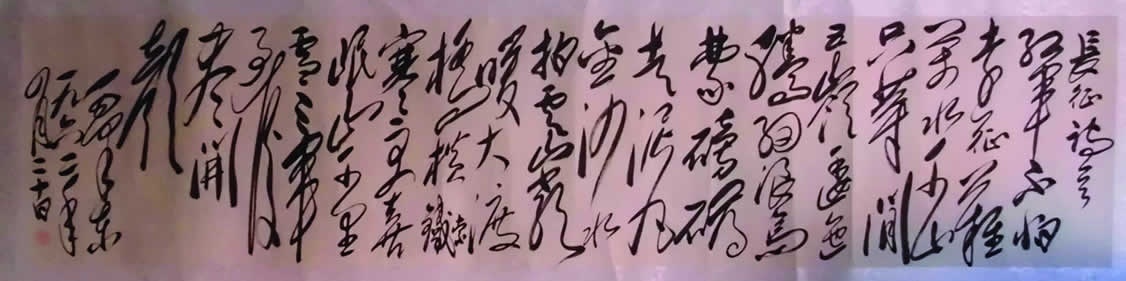 長征詩一首
紅軍不怕
遠征難
萬水千山
只等閒
五嶺逶迤
騰細浪烏
蒙磅礴
走泥丸
金沙水
拍雲崖
暖大渡
橋橫鐵索
寒更喜
岷山千里
雪三軍
過後
盡開
顏
毛澤東
二年
月二十日